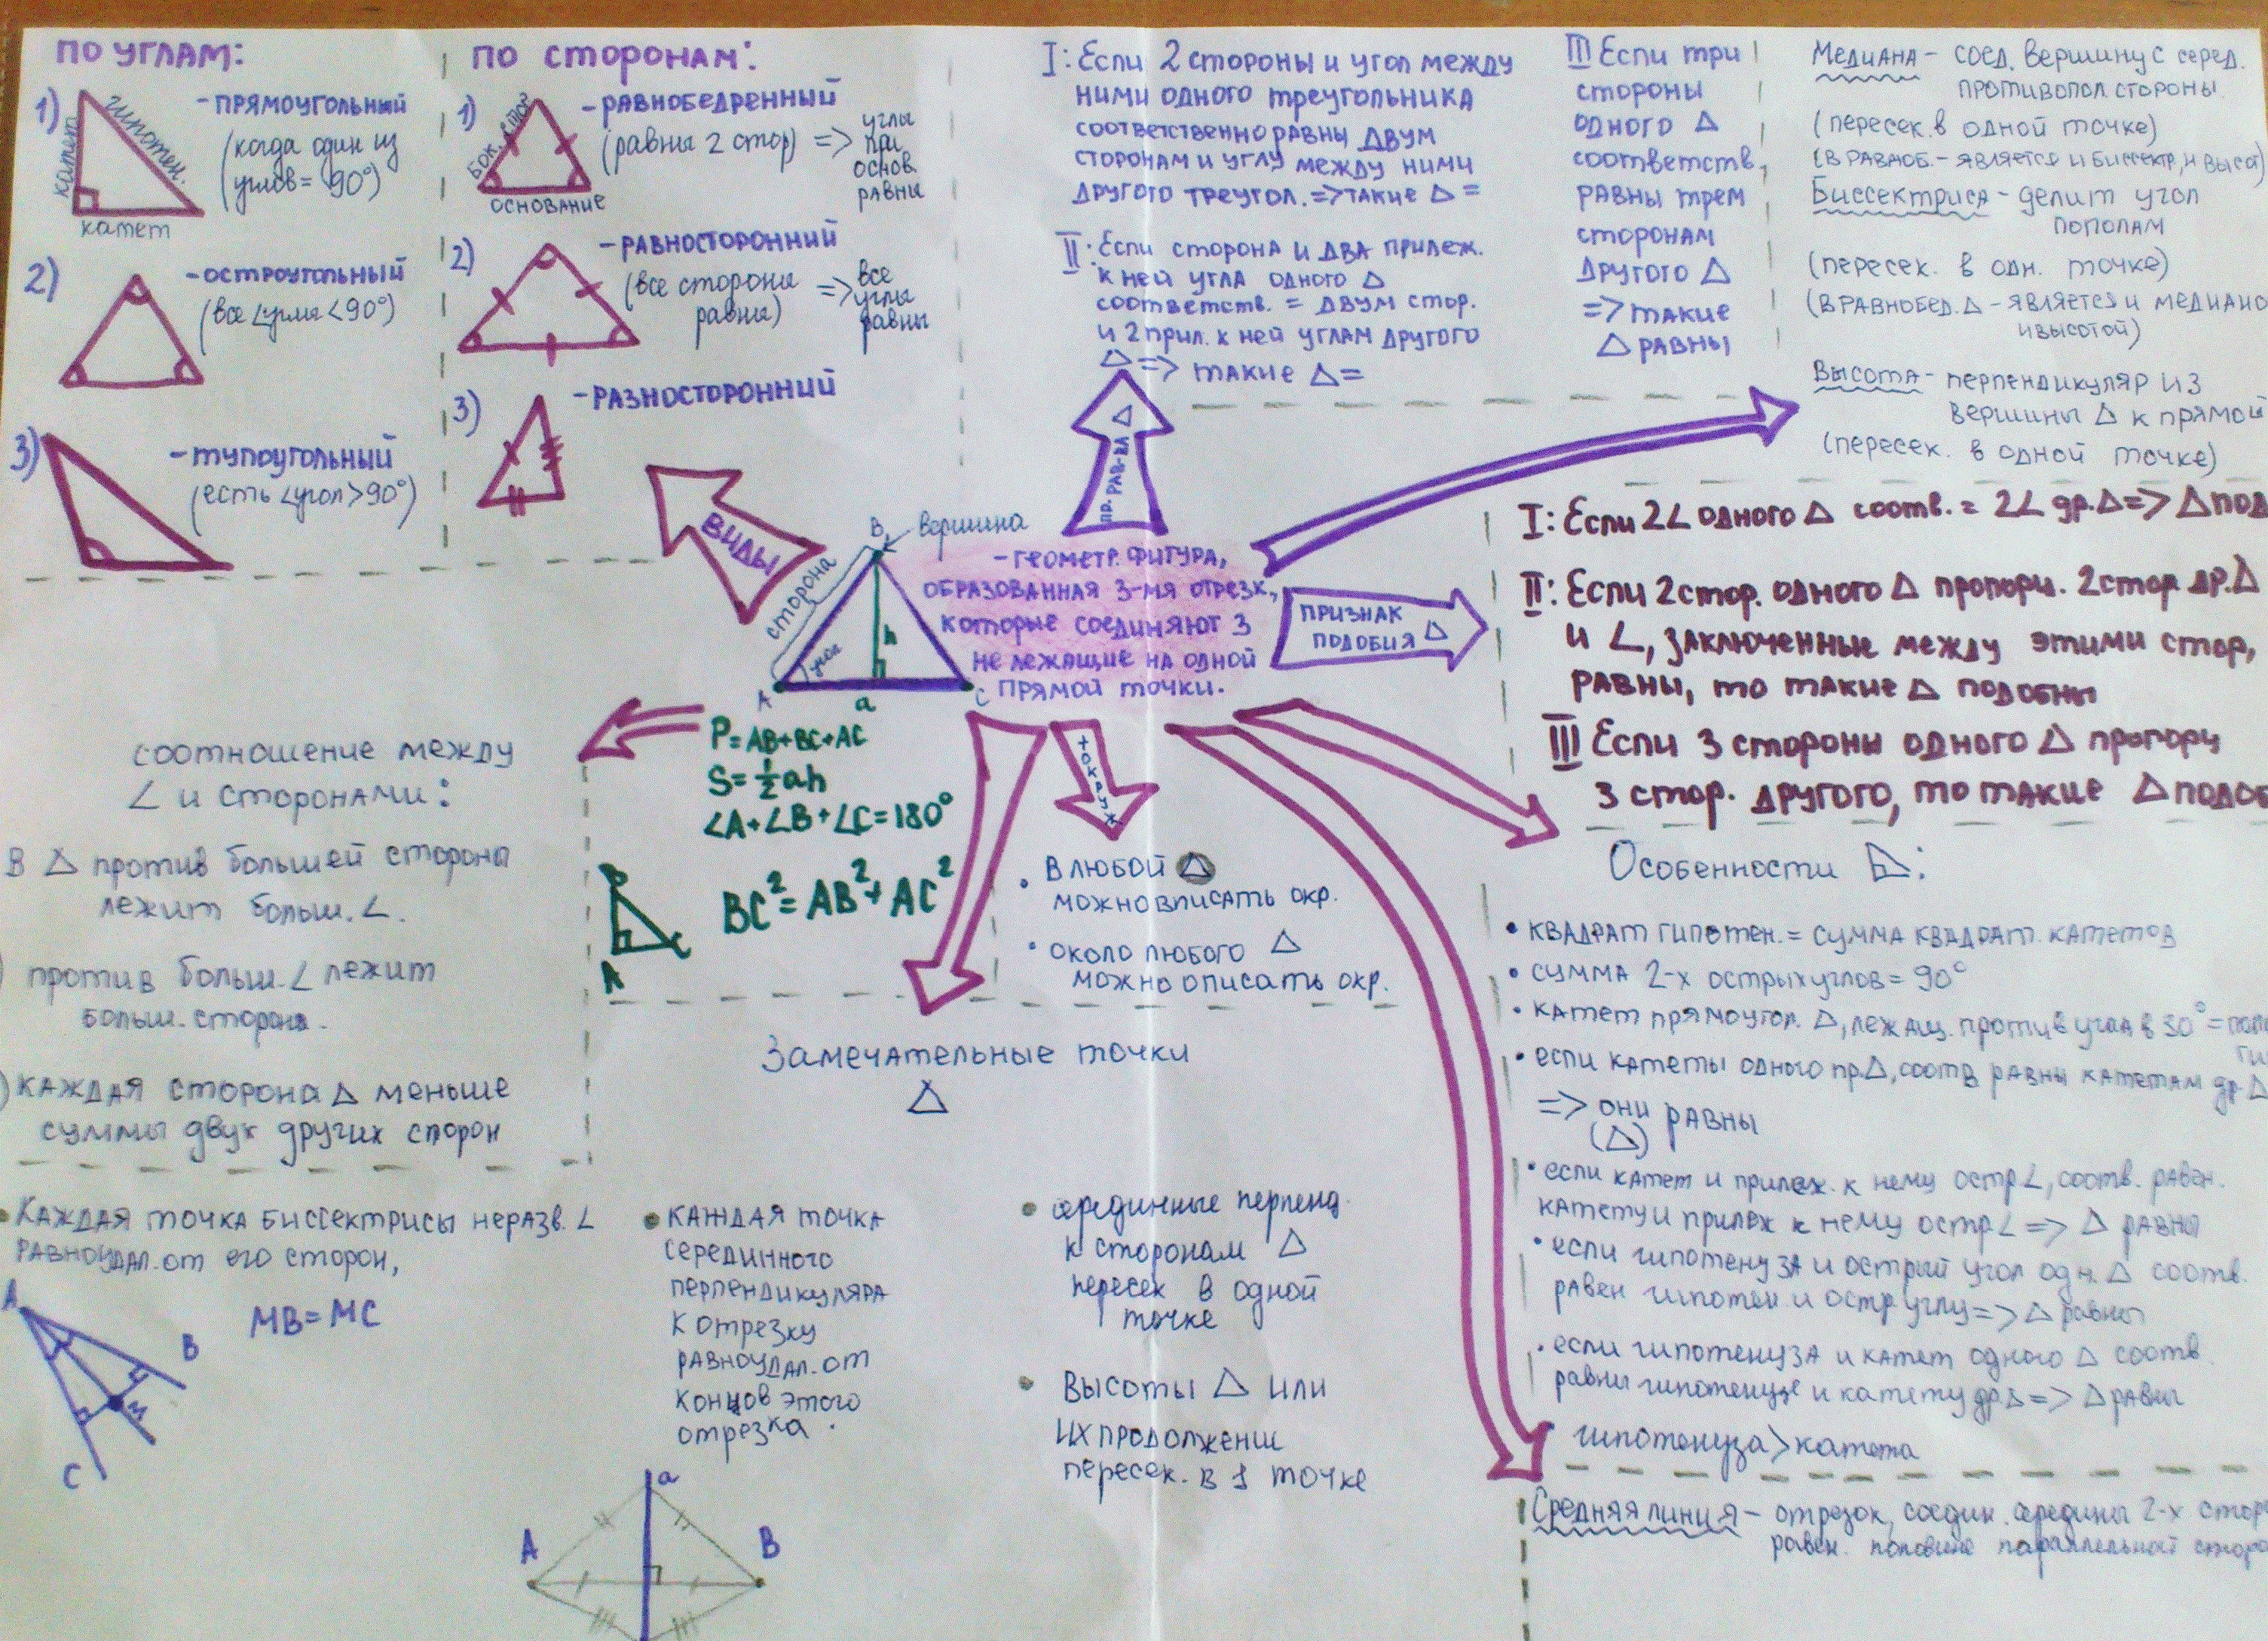 ПО УГЛАМ:
1)
катет
гипотен.
катет
- ПРЯМОУГОЛЬНЫЙ
(когда один из
углов = 90°)
2)
- ОСТРОУГОЛЬНЫЙ
(все ∠углы < 90°)
3)
- ТУПОУГОЛЬНЫЙ
(есть ∠угол > 90°)
ПО СТОРОНАМ:
1)
Бок. стор.
основание
- РАВНОБЕДРЕННЫЙ
(равны 2 стор) =>
углы
при
основ.
равны
2)
- РАВНОСТОРОННИЙ
(все стороны
равны)
=> все
углы
равны
3)
- РАЗНОСТОРОННИЙ
I: Если 2 стороны и угол между
ними одного треугольника
соответственно равны двум
сторонам и углу между ними
другого треугол. => такие △ =
II: Если сторона и два прилеж.
к ней угла одного △
соответств. = двум стор.
и 2 прил. к ней углам другого
△ => такие △ =
III Если три
стороны
одного △
соответств,
равны трем
сторонам
другого △
=> такие
△ равны
Медиана - соед. вершину с серед.
противопол. стороны.
(пересек. в одной точке)
(в равноб. - является и биссектр, и высот)
Биссектриса - делит угол
пополам
(пересек. в одн. точке)
(в равнобед. △ - является и медиано
и высотой)
Высота - перпендикуляр из
вершины △ к прямой
(пересек. в одной точке)
ВИДЫ
ПР. РАВ-ВА △
B
вершина
сторона
угол
h
A
a
C
- геометр. фигура,
образованная 3-мя отрезк,
которые соединяют 3
не лежащие на одной
прямой точки.
ПРИЗНАК
ПОДОБИЯ △
I: Если 2∠ одного △ соотв. = 2∠ др.△ => △ под
II: Если 2 стор. одного △ пропорц. 2 стор др.△
и ∠, заключенные между этими стор,
равны, то такие △ подобны
III Если 3 стороны одного △ пропорц
3 стор. другого, то такие △ подоб
P = AB + BC + AC
S = ½ ah
∠A + ∠B + ∠C = 180°
B
A
C
BC² = AB² + AC²
соотношение между
∠ и сторонами:
В △ против большей стороны
лежит больш. ∠.
) против больш. ∠ лежит
больш. сторона.
) каждая сторона △ меньше
суммы двух других сторон
• В любой △
можно вписать окр.
• около любого △
можно описать окр.
Замечательные точки
△
• Каждая точка биссектрисы неразв. ∠
равноудал. от его сторон,
MB = MC
A
B
M
C
• каждая точка
серединного
перпендикуляра
к отрезку
равноудал. от
концов этого
отрезка.
a
A
B
• серединные перпенд.
к сторонам △
пересек в одной
точке
• Высоты △ или
их продолжение
пересек. в 1 точке
Особенности △:
• квадрат гипотен. = сумма квадрат. катетов
• сумма 2-х острых углов = 90°
• катет прямоугол. △, лежащ. против угла в 30° = поло
ги
• если катеты одного пр.△, соотв равны катетам др.△
=> они равны
(△)
• если катет и прилеж. к нему остр ∠, соотв. равен.
катету и прилеж к нему остр ∠ => △ равны
• если гипотенуза и острый угол одн. △ соотв.
равен гипотен. и остр. углу => △ равны
• если гипотенуза и катет одного △ соотв.
равны гипотенузе и катету др.△ => △ равны
гипотенуза > катета
Средняя линия - отрезок, соедин. середины 2-х стор
равен. половине параллельной сторо